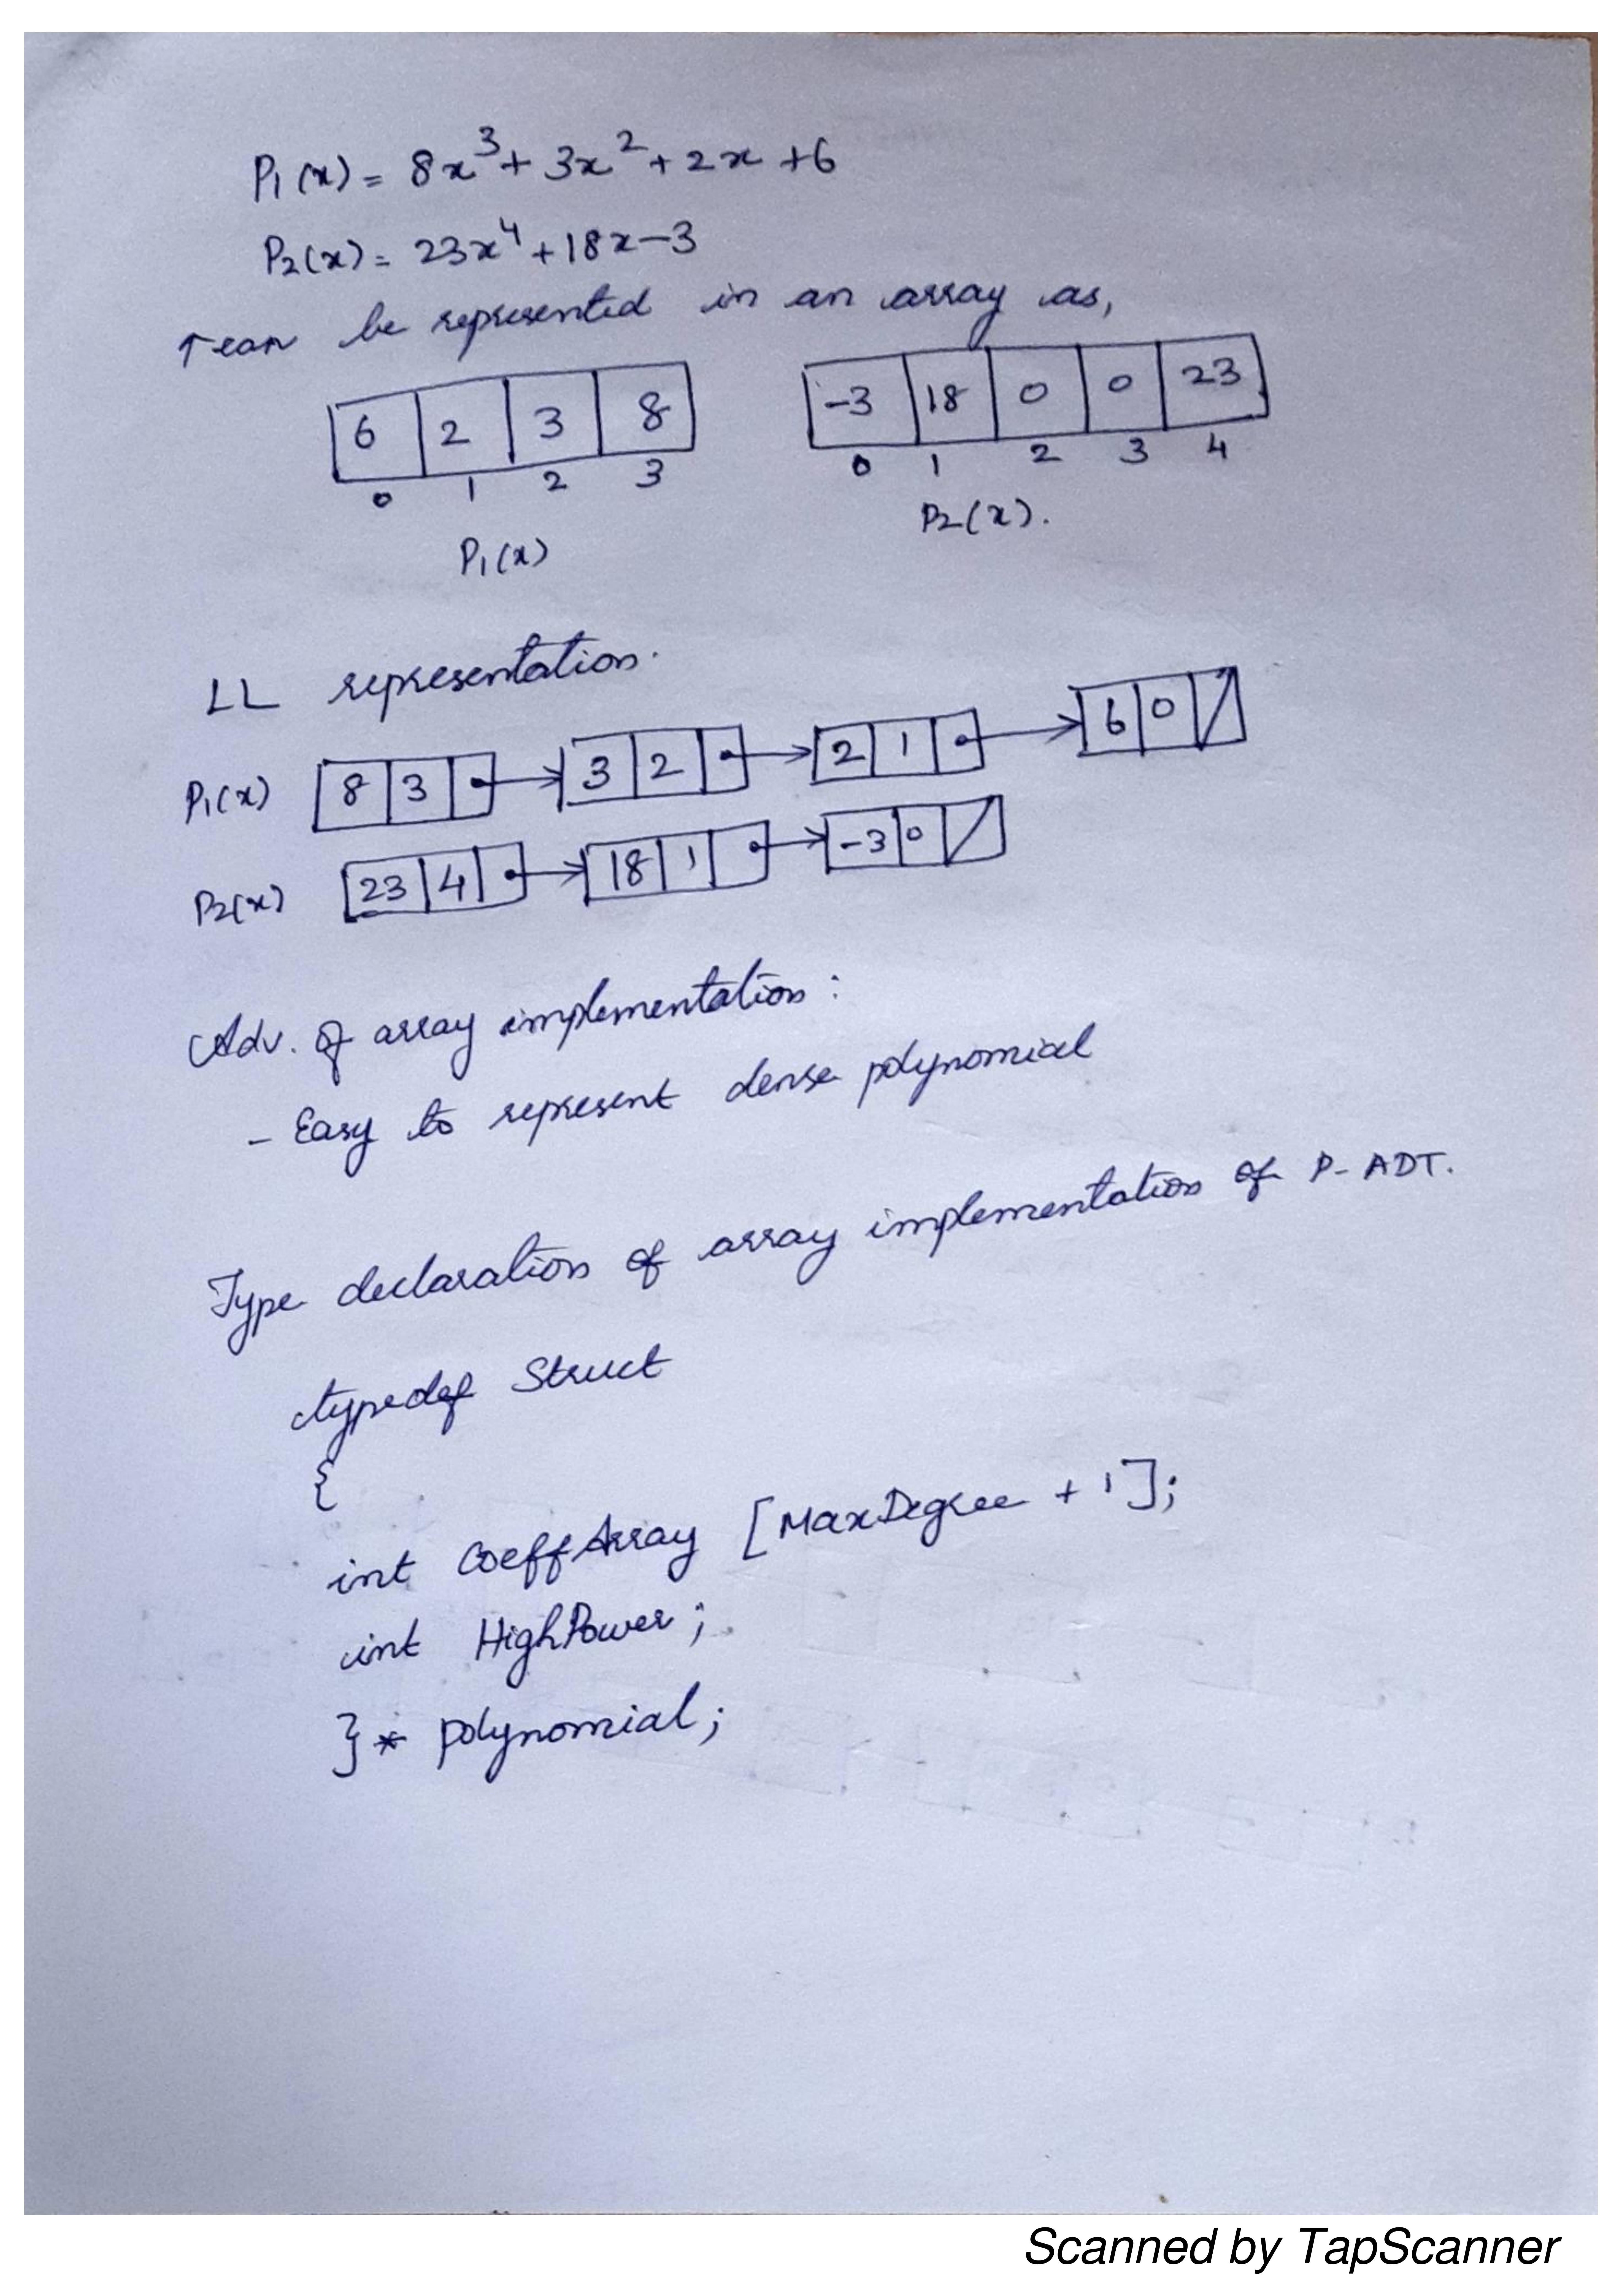 P₁(x) = 8x³ + 3x² + 2x + 6
P₂(x) = 23x⁴ + 18x - 3
can be represented in an array as,
6 2 3 8 -3 18 0 0 23
0 1 2 3 0 1 2 3 4
P₁(x) P₂(x).
LL representation.
P₁(x) 8 3 3 2 2 1 6 0
P₂(x) 23 4 18 1 -3 0
Adv. of array implementation :
- Easy to represent dense polynomial
Type declaration of array implementation of P-ADT.
typedef Struct
{
int CoeffArray [MaxDegree + 1];
int HighPower;
}* polynomial;
Scanned by TapScanner